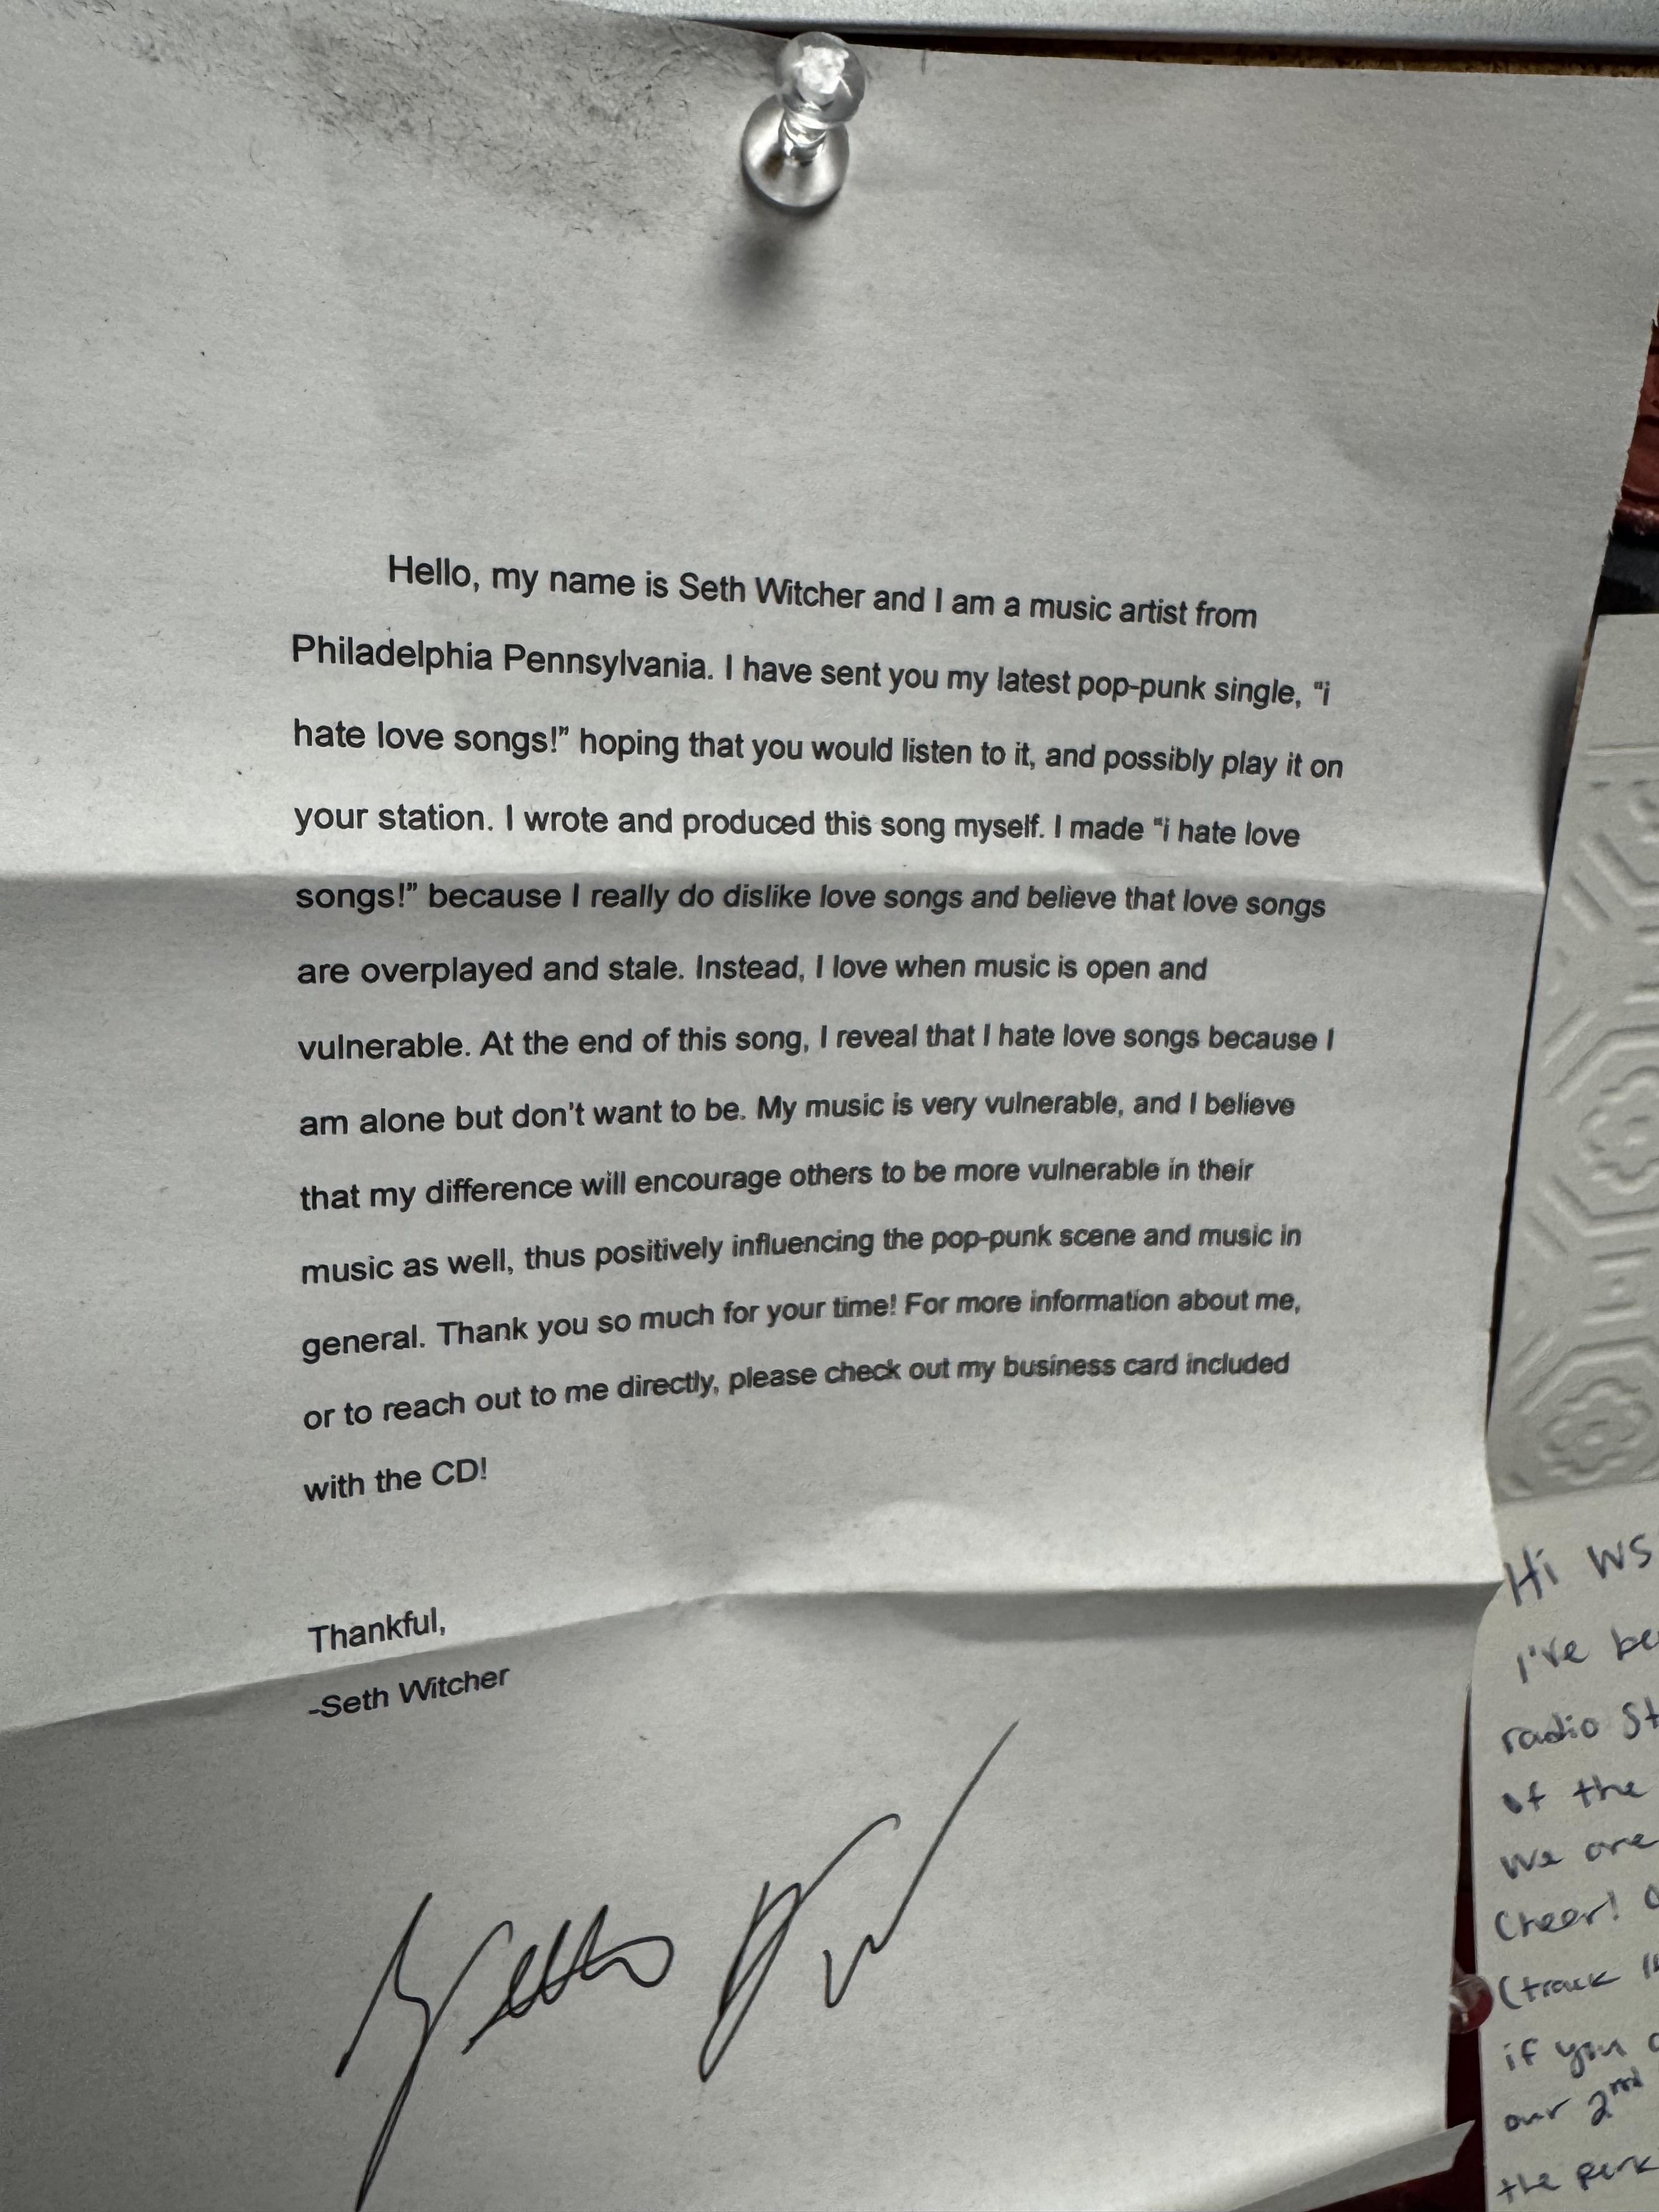 Hello, my name is Seth Witcher and I am a music artist from
Philadelphia Pennsylvania. I have sent you my latest pop-punk single, “i
hate love songs!” hoping that you would listen to it, and possibly play it on
your station. I wrote and produced this song myself. I made “i hate love
songs!” because I really do dislike love songs and believe that love songs
are overplayed and stale. Instead, I love when music is open and
vulnerable. At the end of this song, I reveal that I hate love songs because I
am alone but don’t want to be. My music is very vulnerable, and I believe
that my difference will encourage others to be more vulnerable in their
music as well, thus positively influencing the pop-punk scene and music in
general. Thank you so much for your time! For more information about me,
or to reach out to me directly, please check out my business card included
with the CD!
Thankful,
-Seth Witcher
Seth W
Hi WS
I've be
radio St
of the
We are
Cheer!
(track
if you
our 2nd
the